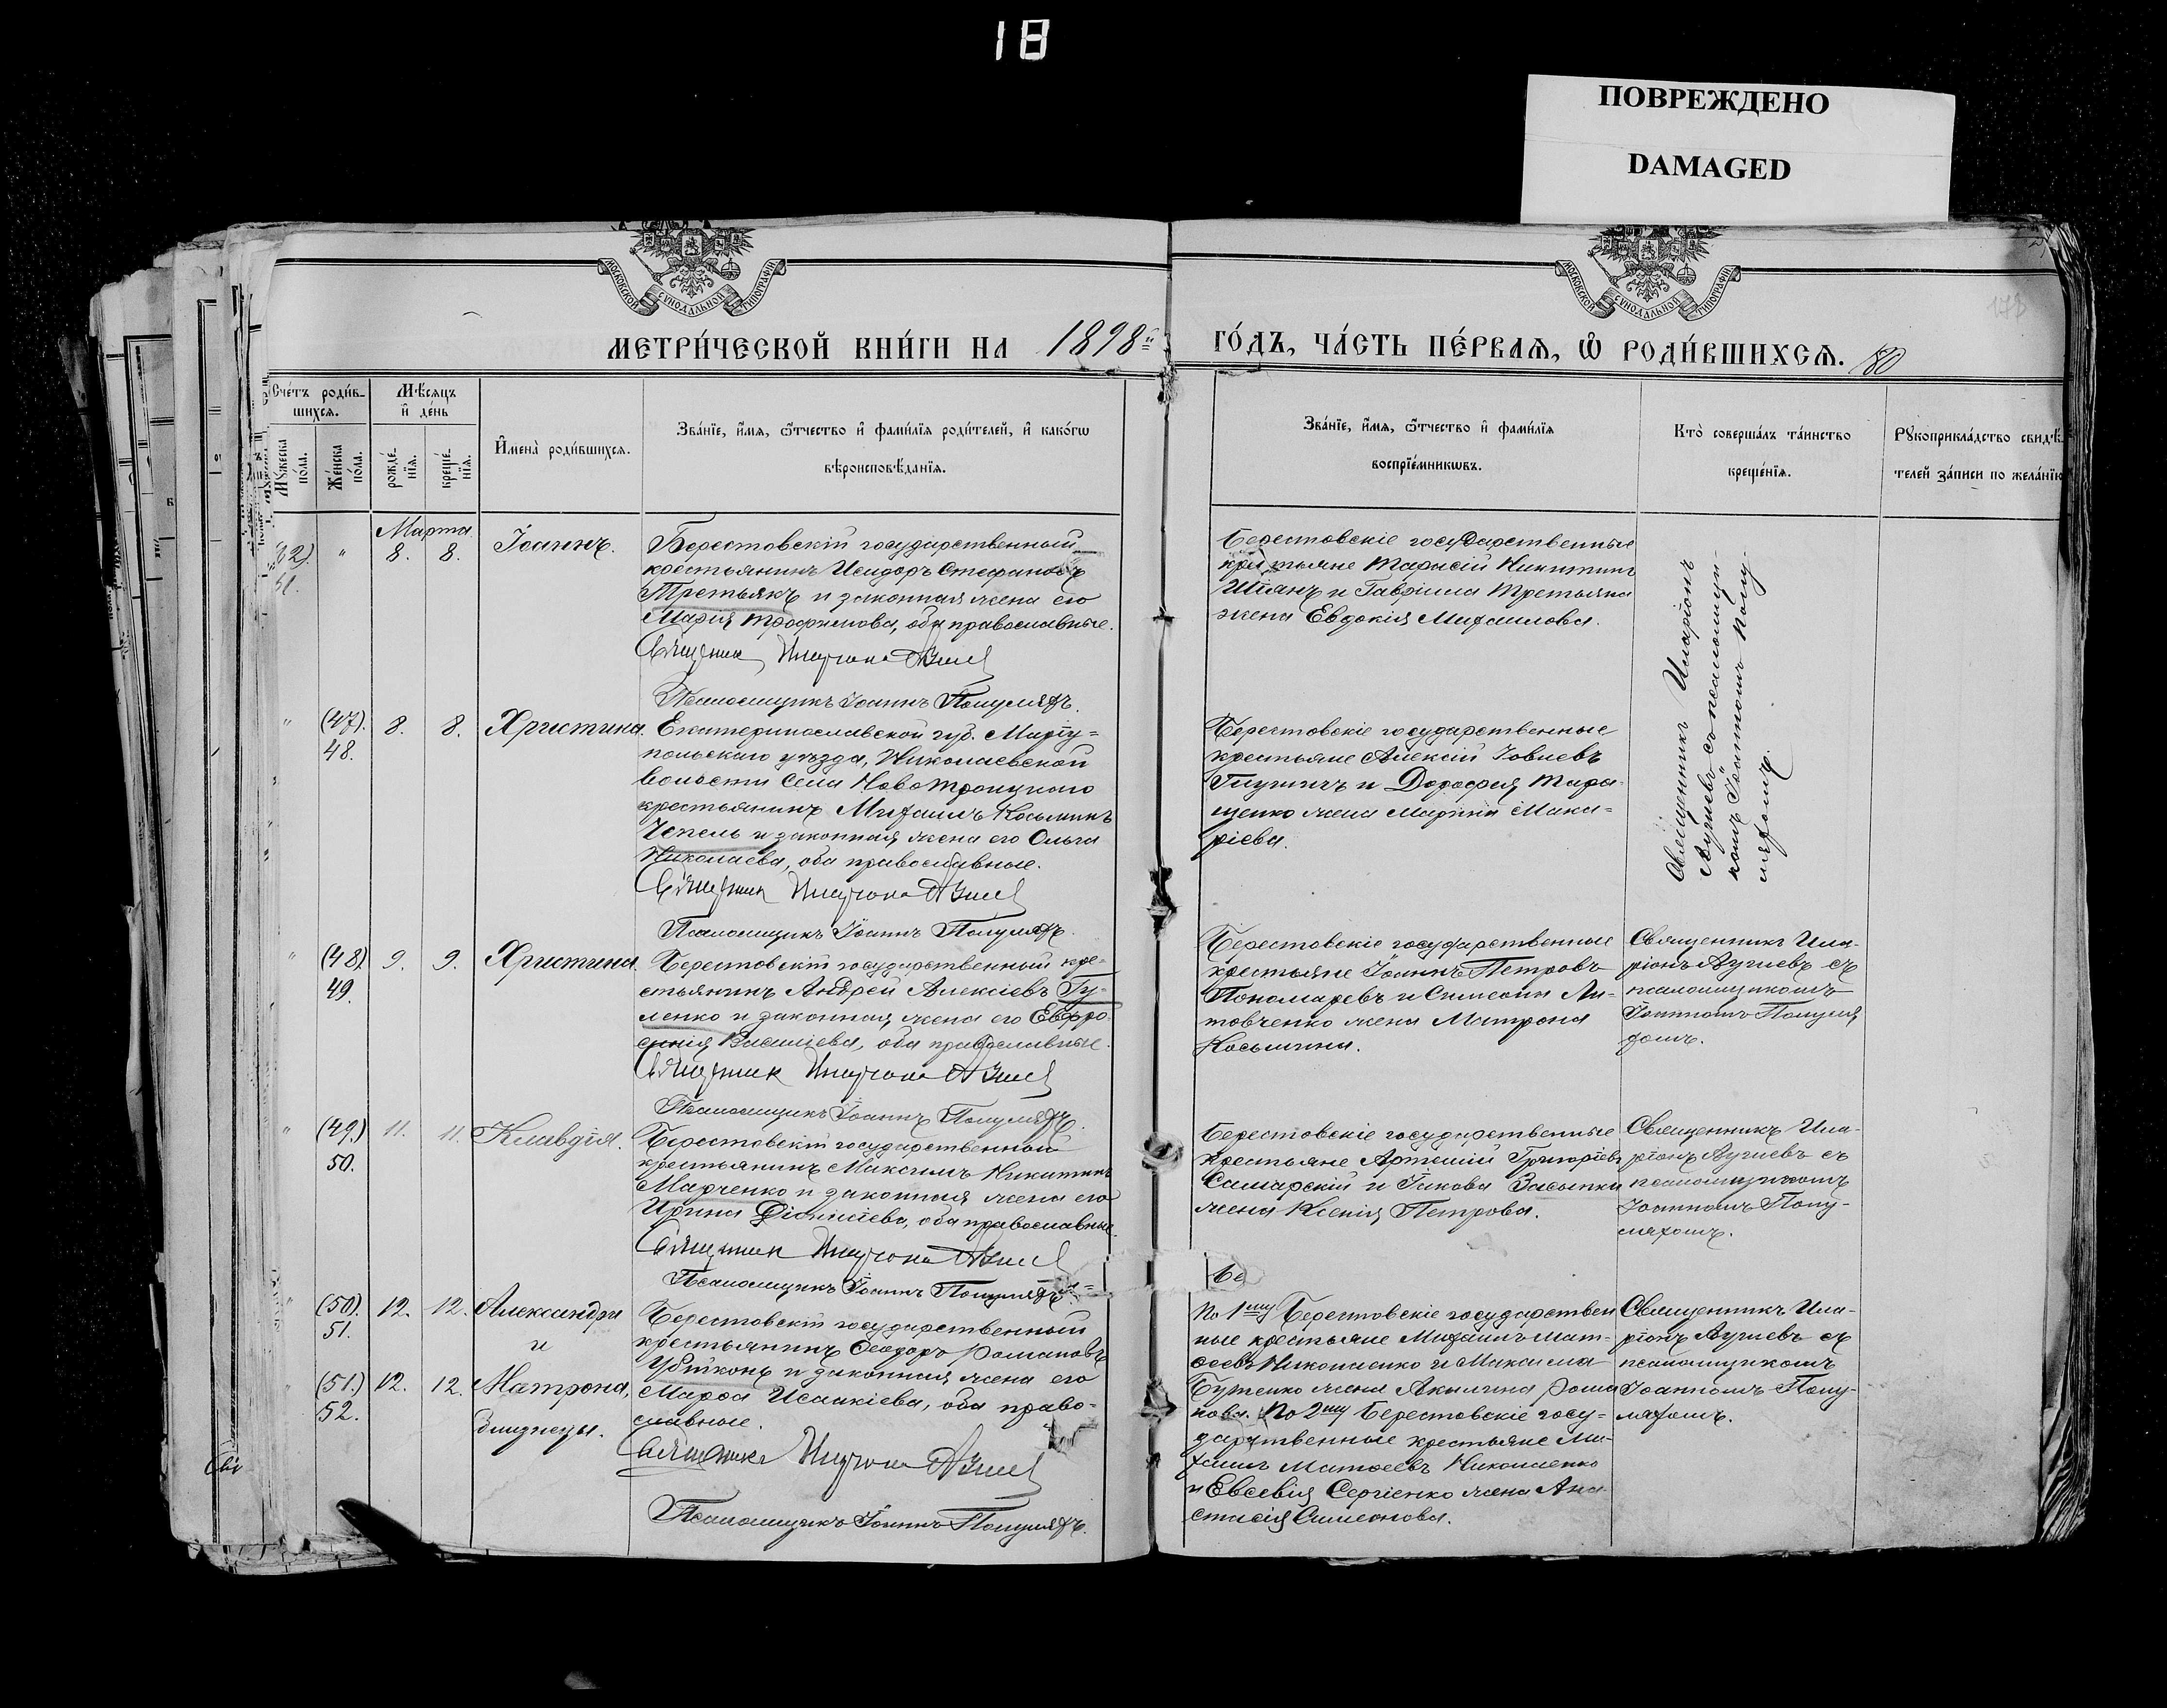 18
ПОВРЕЖДЕНО
DAMAGED
МОСКОВСКОЙ СѴНОДАЛЬНОЙ ТИПОГРАФІИ
МОСКОВСКОЙ СѴНОДАЛЬНОЙ ТИПОГРАФІИ
МЕТРИ́ЧЕСКОЙ КНИ́ГИ НА 1898й ГО́ДЪ, ЧА́СТЬ ПЕ́РВАЯ, Ѽ РОДИ́ВШИХСЯ. 80
Сче́тъ роди́в-
шихся.
Мѣ́сяцъ
и҆ де́нь
Мꙋ́жеска
по́ла.
Же́нска
по́ла.
рожде́-
нїя.
креще́-
нїя.
И҆мена̀ роди́вшихся.
Зва́нїе, и҆́мя, ѻ҆́тчество и҆ фами́лїя роди́телей, и҆ како́гѡ
вѣроисповѣ́данїя.
Зва́нїе, и҆́мя, ѻ҆́тчество и҆ фами́лїя
воспрїе́мникѡвъ.
Кто̀ соверша́лъ та́инство
креще́нїя.
Рꙋкоприкла́дство свидѣ́-
телей за́писи по жела́нїю
Марта
8. 8. Іоаннъ.
Берестовскій государственный
крестьянинъ Исидоръ Стефановъ
Третьякъ и законная жена его
Марія Трофимова, оба православные.
Священник
Псаломщикъ Іоаннъ Полуляхъ.
Берестовскіе государственные
крестьяне Тарасій Никитинъ
Шіянъ и Гавріила Третьяка
жена Евдокія Михаилова.
Священникъ Иларіонъ
съ псаломщи-
комъ Іоанномъ Полу-
ляхомъ.
" (47). 8. 8. Христина.
48.
Екатеринославской губ. Маріу-
польскаго уѣзда, Николаевской
волости села Новотроицкаго
крестьянинъ Михаилъ Косьминъ
Чепель и законная жена его Ольга
Николаева, оба православные.
Священник
Псаломщикъ Іоаннъ Полуляхъ.
Берестовскіе государственные
крестьяне Алексій Іовлевъ
и Дорофея Тара-
щенко жена Марина Мака-
ріева.
" (48). 9. 9. Христина.
49.
Берестовскій государственный кре-
стьянинъ Андрей Алексіевъ Гу-
ленко и законная жена его Евфро-
синія Василіева, оба православные.
Священник
Псаломщикъ Іоаннъ Полуляхъ.
Берестовскіе государственные
крестьяне Іоаннъ Петровъ
Пономаревъ и Симеона Ли-
товченко жена Матрона
Косьмина.
Священникъ Ила-
ріонъ съ
псаломщикомъ
Іоанномъ Полуля
хомъ.
" (49.) 11. 11. Клавдія.
50.
Берестовскій государственный
крестьянинъ Максимъ Никитинъ
Марченко и законная жена его
Ирина Діонисіева, оба православные.
Священник
Псаломщикъ Іоаннъ Полуляхъ.
Берестовскіе государственные
крестьяне Артемій Григоріевъ
Самарскій и Іакова Засыпки
жена Ксенія Петрова.
Священникъ Ила-
ріонъ съ
псаломщикомъ
Іоанномъ Полу-
ляхомъ.
(50). 12. 12. Александра
51. и
(51.) 12. 12. Матрона,
52. близнецы.
Берестовскій государственный
крестьянинъ Ѳеодоръ Романовъ
и законная жена его
Марѳа Исаакіева, оба право-
славные.
Священникъ
Псаломщикъ Іоаннъ Полуляхъ.
По 1му Берестовскіе государствен
ные крестьяне Михаилъ Мат-
ѳеевъ Николаенко и Максима
Бутенко жена Акилина Рома
нова. По 2му Берестовскіе госу-
дарственные крестьяне Ми-
хаилъ Матѳеевъ Николаенко
и Евсевія Сергіенко жена Ана
стасія Симеонова.
Священникъ Ила-
ріонъ съ
псаломщикомъ
Іоанномъ Полу-
ляхомъ.